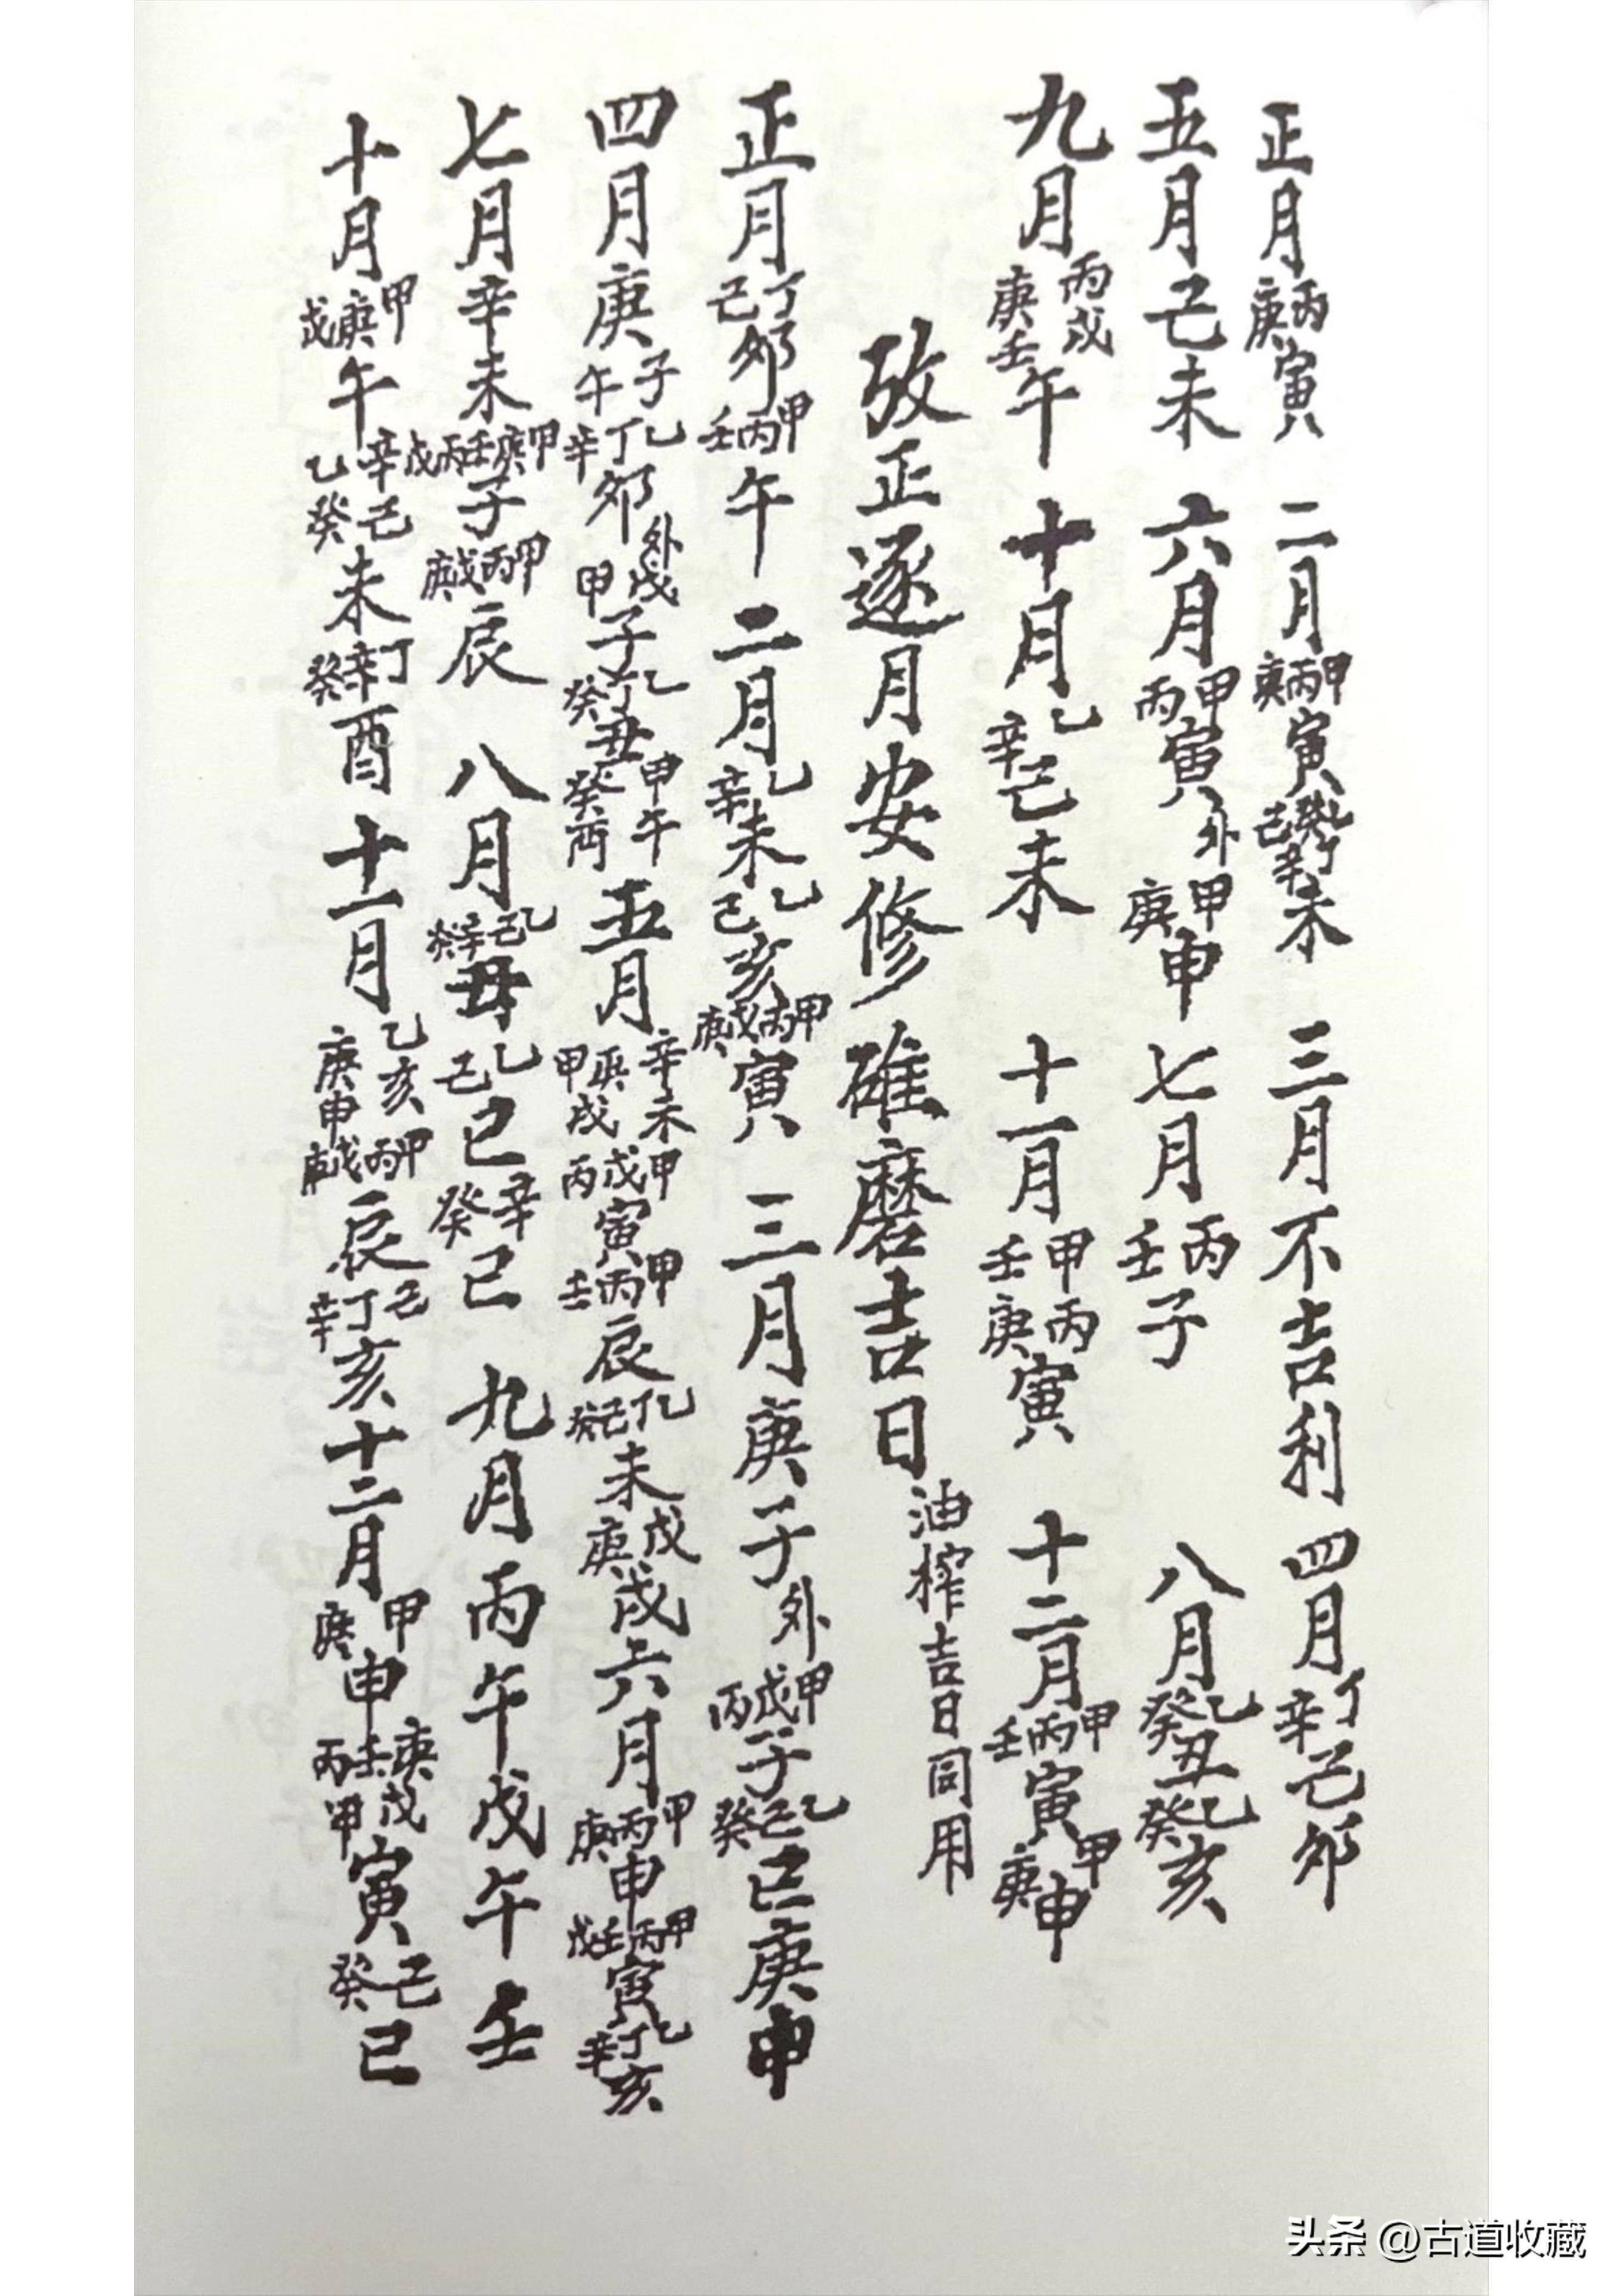 正月丙庚寅 二月甲丙庚寅乙癸丁己辛未 三月不吉利 四月丁辛己卯
五月己未 六月甲丙寅外甲庚申 七月丙壬子 八月乙癸丑乙癸亥
九月丙戊庚壬午 十月乙辛己未 十一月甲壬丙庚寅 十二月甲丙壬寅甲庚申
攷正逐月安修碓磨吉日油榨吉日同用
正月丁己卯甲丙壬午 二月乙辛未乙己亥甲丙戊庚寅 三月庚子外甲戊丙子乙己癸巳庚申
四月庚子午乙丁辛卯外戊甲子乙丁癸丑甲午癸 五月辛未甲戌甲戊丙寅甲丙壬辰己癸未戊庚戌六月甲丙庚申甲丙壬戊寅乙丁辛亥
七月辛未甲庚壬丙戊子甲丙戊庚辰 八月乙己辛癸丑乙己巳辛癸巳 九月丙午戊午壬
十月甲庚戊午辛己乙癸未丁辛癸酉十一月乙亥庚申甲丙戊庚辰己丁辛亥十二月甲庚申庚戊壬丙甲寅己癸巳
头条 @古道收藏